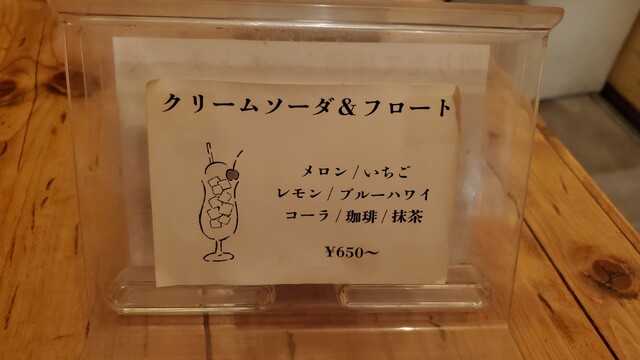 クリームソーダ&フロート
メロン/いちご
レモン/ブルーハワイ
コーラ/珈琲/抹茶
¥650～